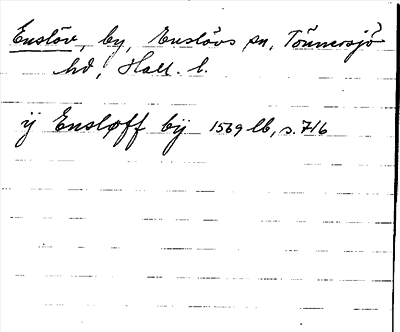 Enslöv, by, Enslövs sn, Tönnersjö
hd, Hall. l.
ÿ Ensløff bÿ 1569 lb, s. 716